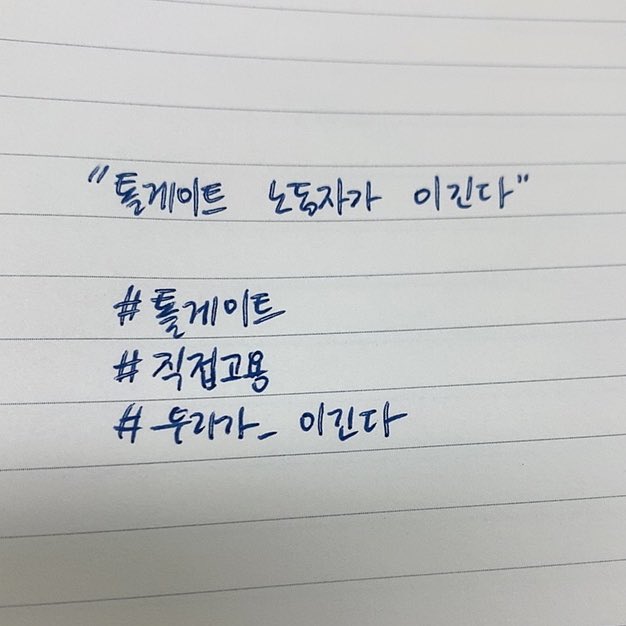 "톨게이트 노동자가 이긴다"
#톨게이트
#직접고용
#우리가_ 이긴다